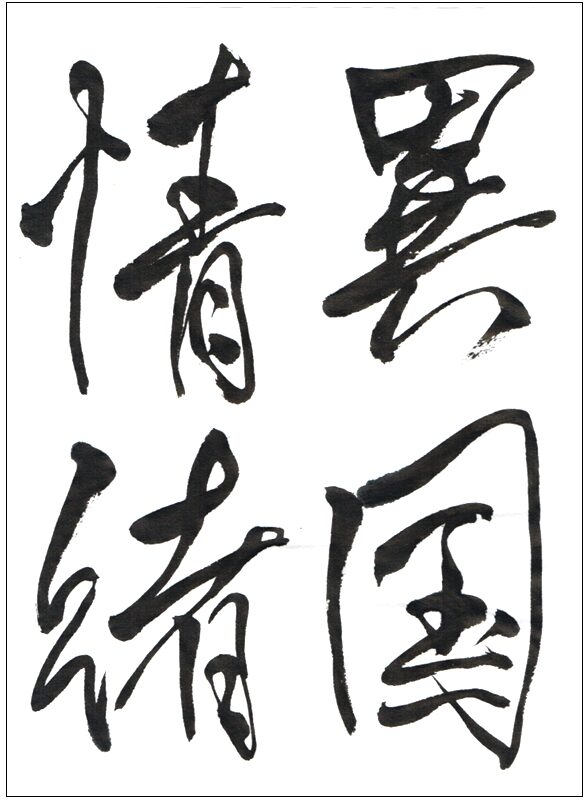 異国
情緒